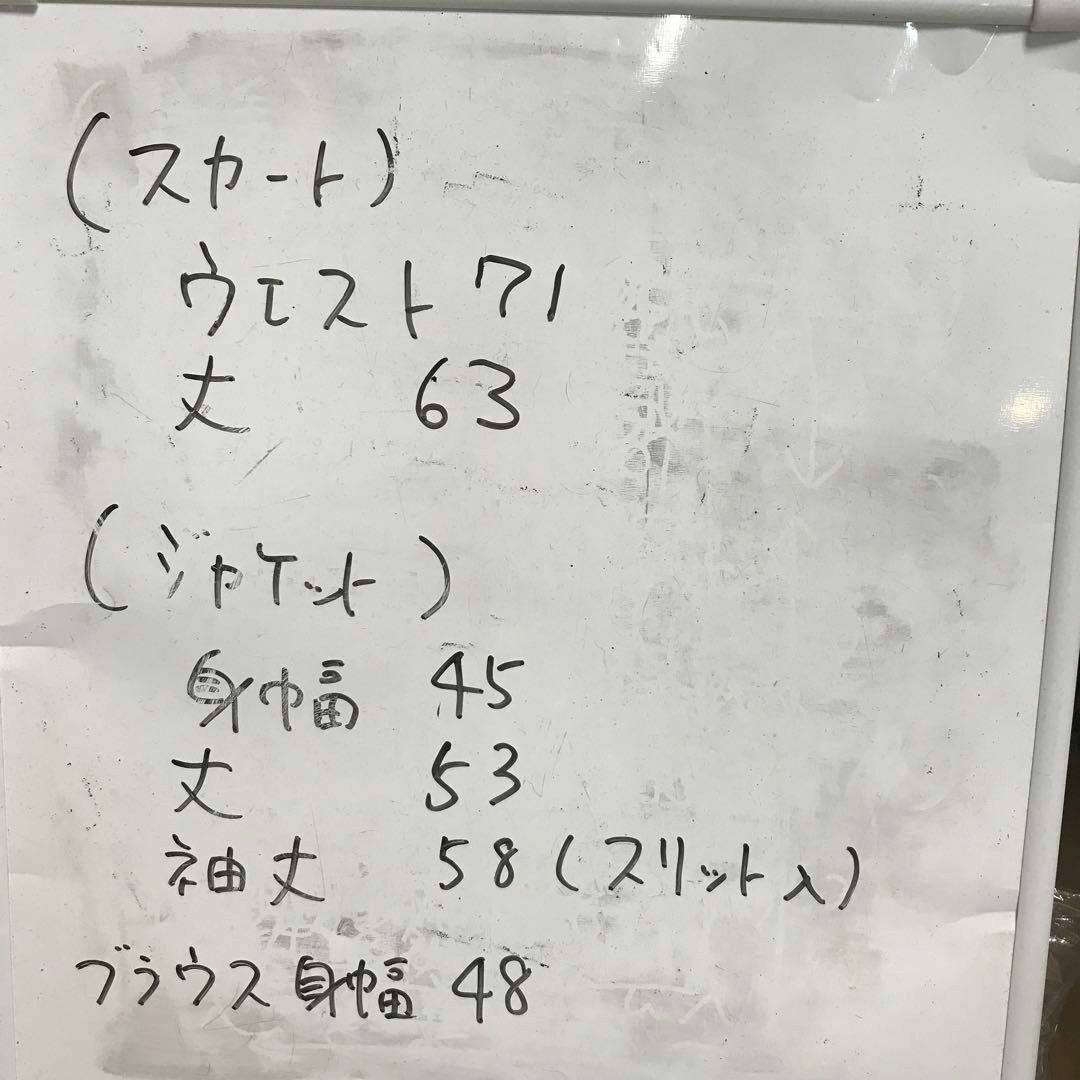 (スカート)
ウエスト 71
丈 63
(ジャケット)
身幅 45
丈 53
袖丈 58 (スリット入)
ブラウス 身幅 48